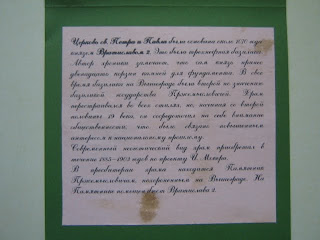 Церковь св. Петра и Павла была основана около 1070 года
князем Вратиславом 2. Это была трехнефная базилика.
Автор хроники замечает, что сам князь принес
двенадцать корзин камней для фундамента. В свое
время базилика на Вышеграде была второй по значению
базиликой государства Пржемысловичей. Храм
перестраивался во всех стилях, но, начиная со второй
половины 19 века, он сосредоточил на себе внимание
общественности, что было связано повышенным
интересом к национальному прошлому.
Современный неоготический вид храм приобретал в
течение 1885-1903 годов по проекту Й. Мокера.
В пресвитерии храма находится Памятник
Пржемысловичам, захороненным на Вышеграде. На
Памятнике помещен бюст Вратислава 2.